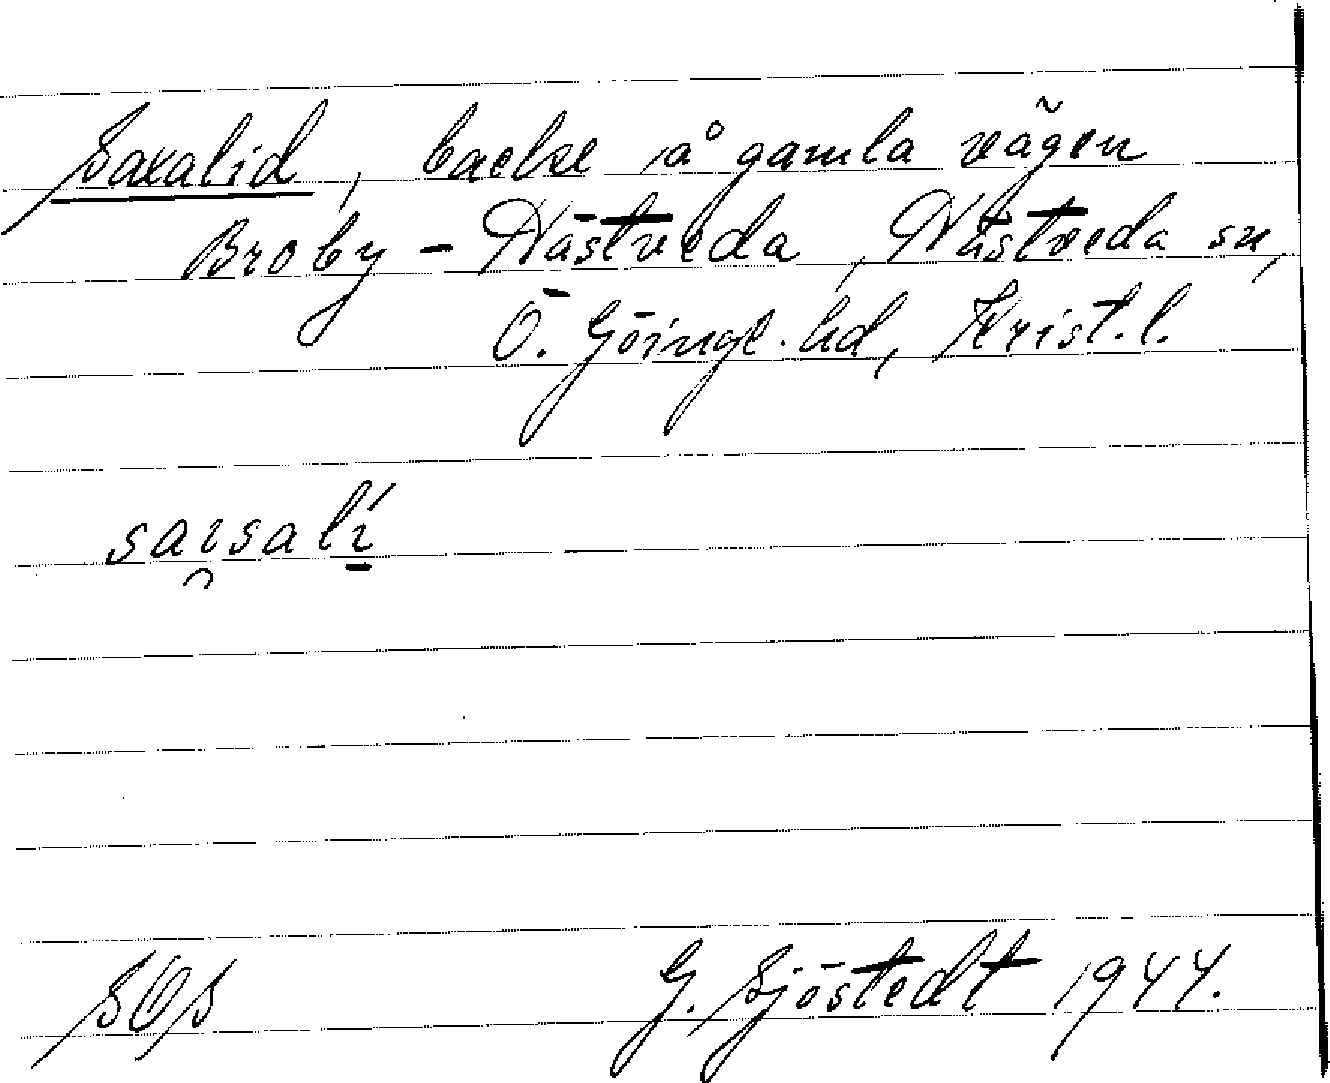 Saxalid, backe å gamla vägen
Broby - Nästveda, Nästveda sn,
Ö. Göinge hd, Krist. l.
SOS G. Sjöstedt 1944.